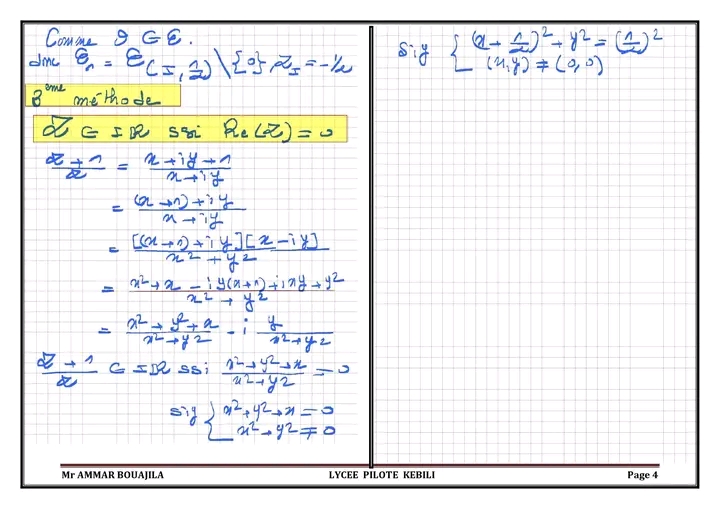 Comme O ∈ C.
donc C₁ = C(I, 1/2) \ {0}, z_I = -1/2
3ème méthode
Z ∈ iR ssi Re(Z) = 0
(z + 1)/z = (x + iy + 1)/(x + iy)
= ((x + 1) + iy)/(x + iy)
= [(x + 1) + iy][x - iy]/(x² + y²)
= (x² + x - iy(x + 1) + ixy + y²)/(x² + y²)
= (x² + y² + x)/(x² + y²) - i y/(x² + y²)
(z + 1)/z ∈ iR ssi (x² + y² + x)/(x² + y²) = 0
sig { x² + y² + x = 0
x² + y² ≠ 0
sig { (x + 1/2)² + y² = (1/2)²
(x, y) ≠ (0, 0)
Mr AMMAR BOUAJILA LYCEE PILOTE KEBILI Page 4